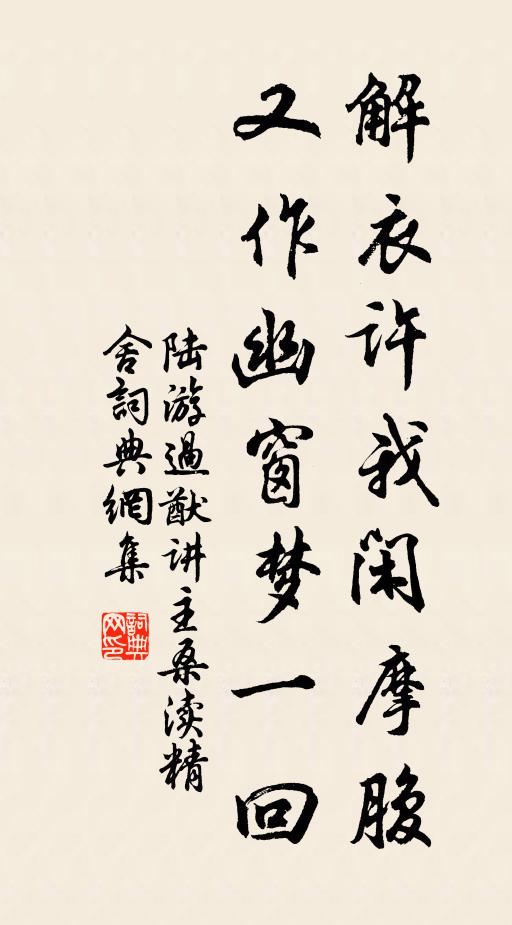 解衣许我闲摩腹
又作幽窗梦一回
陆游過猷讲主桑渎精
舍詞典網集
詞典
网印